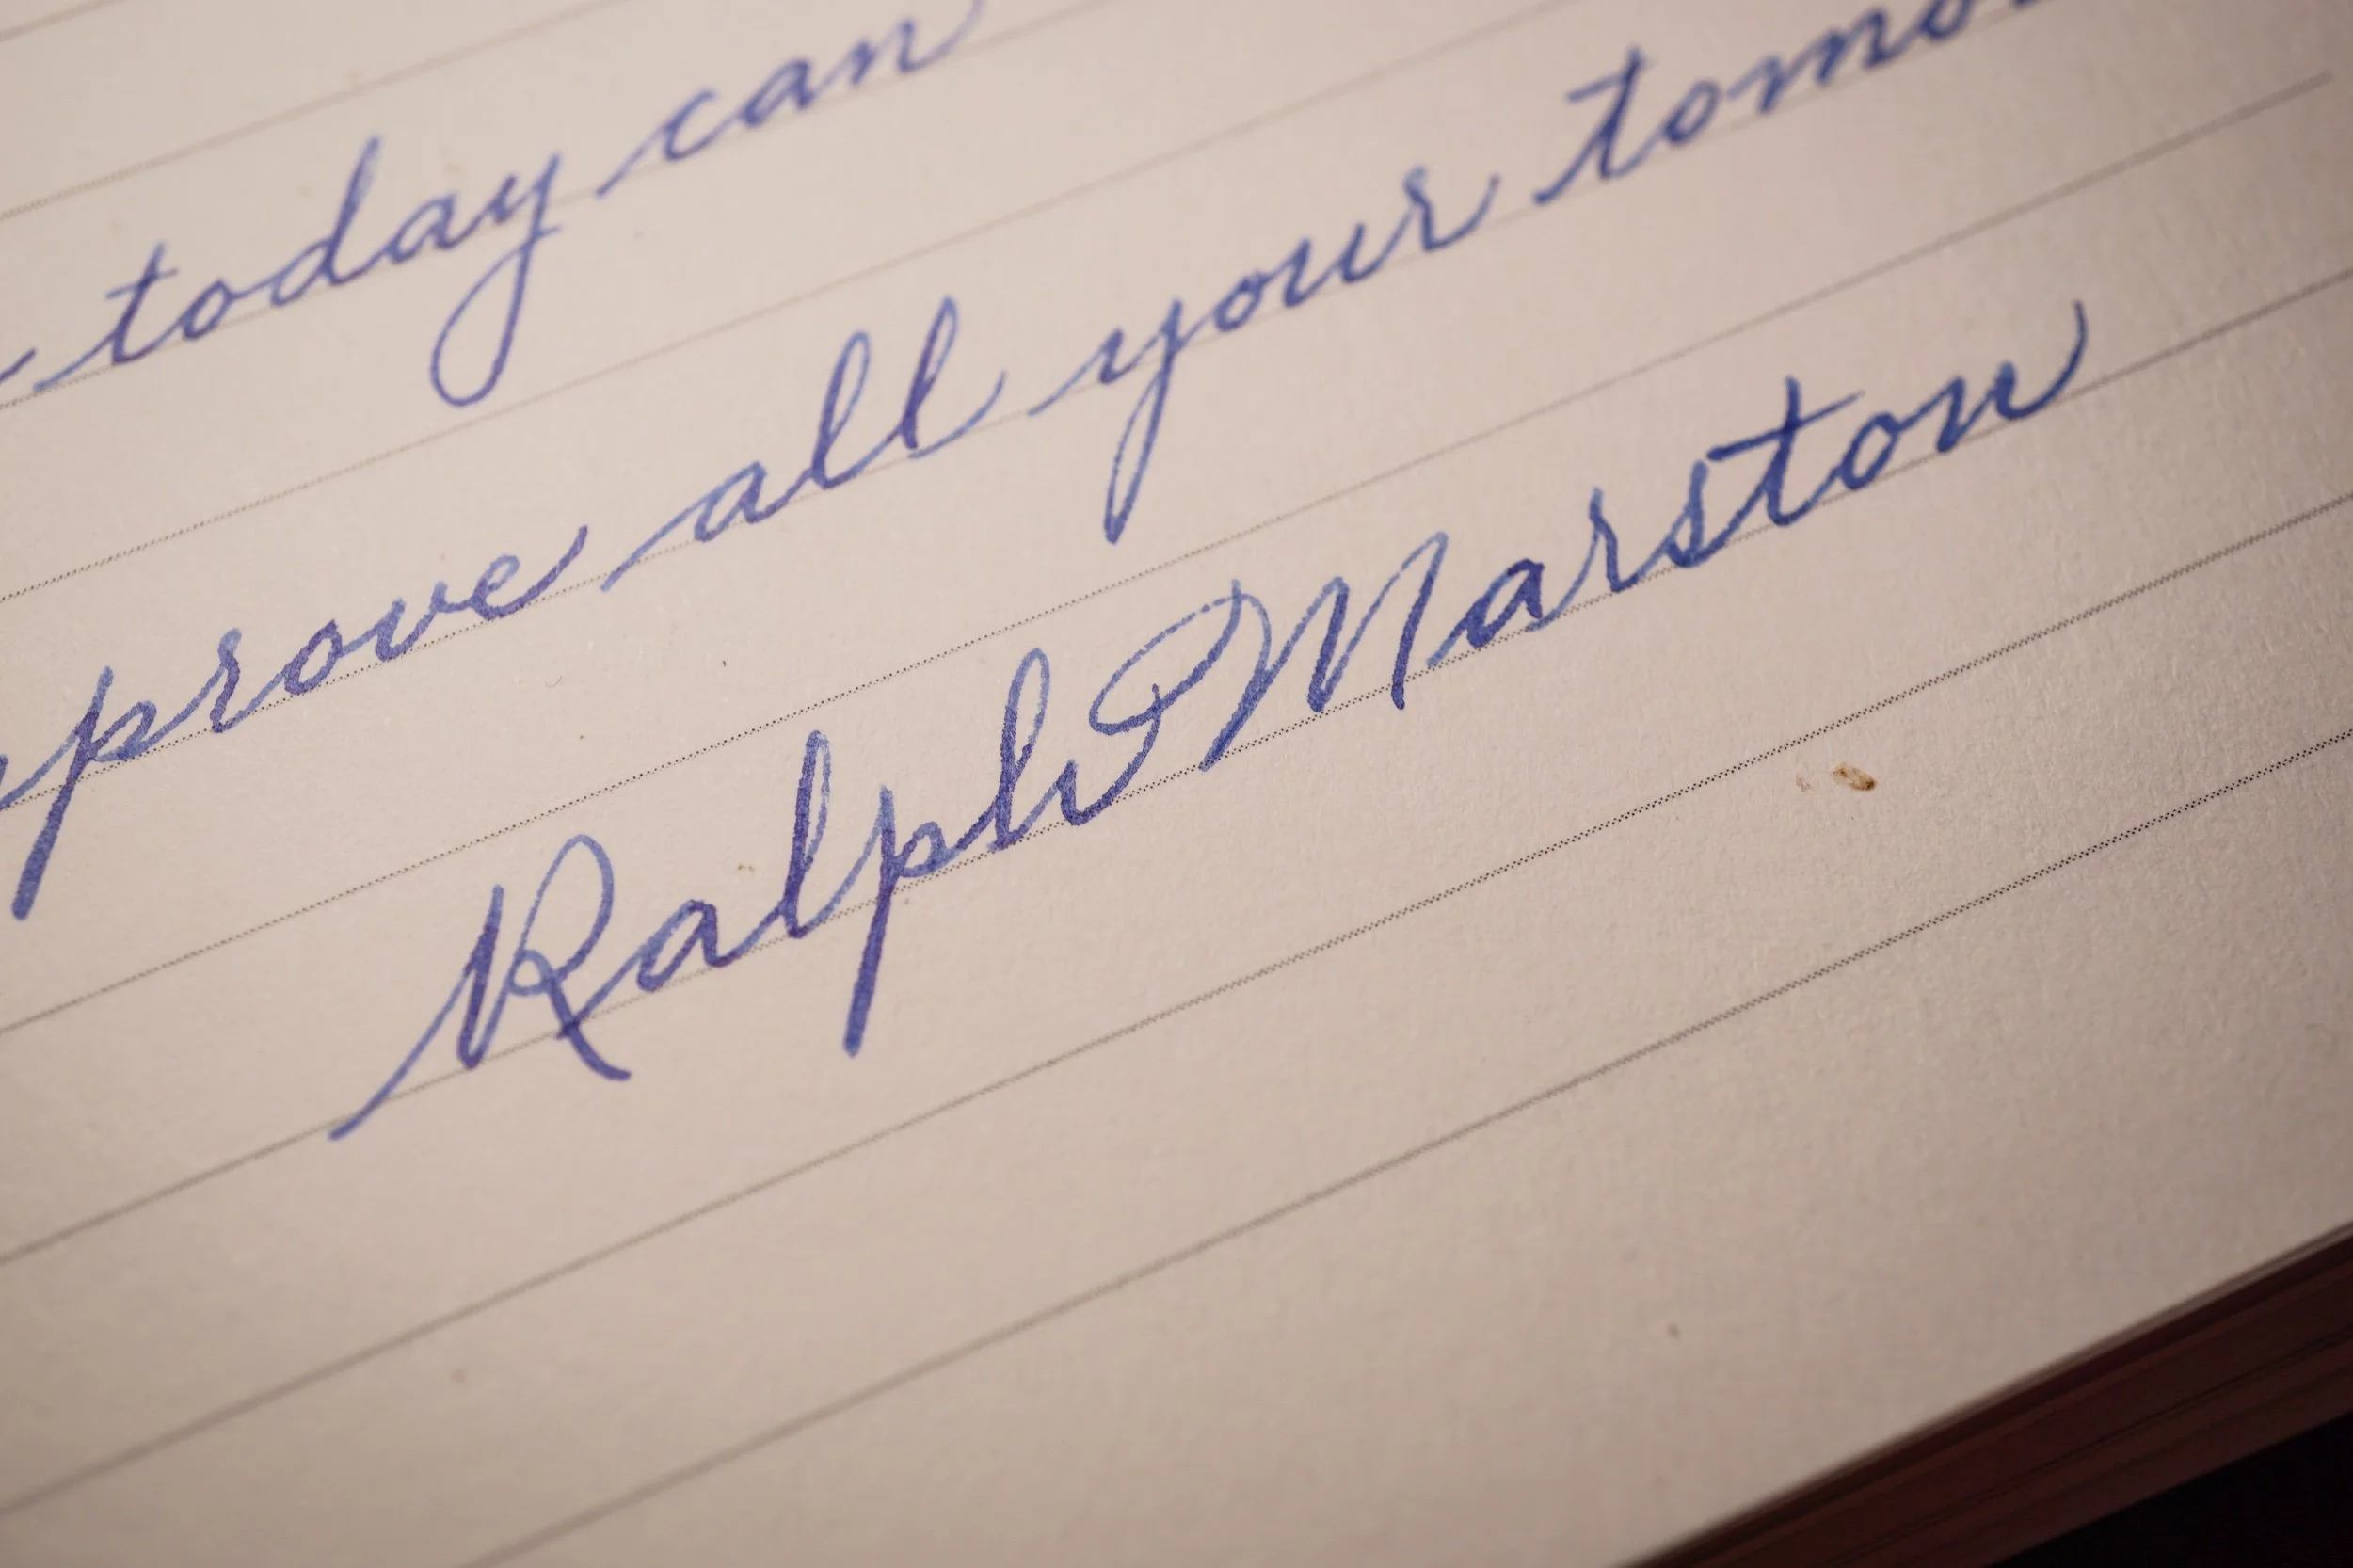 today can
prove all your tomo
Ralph Marston